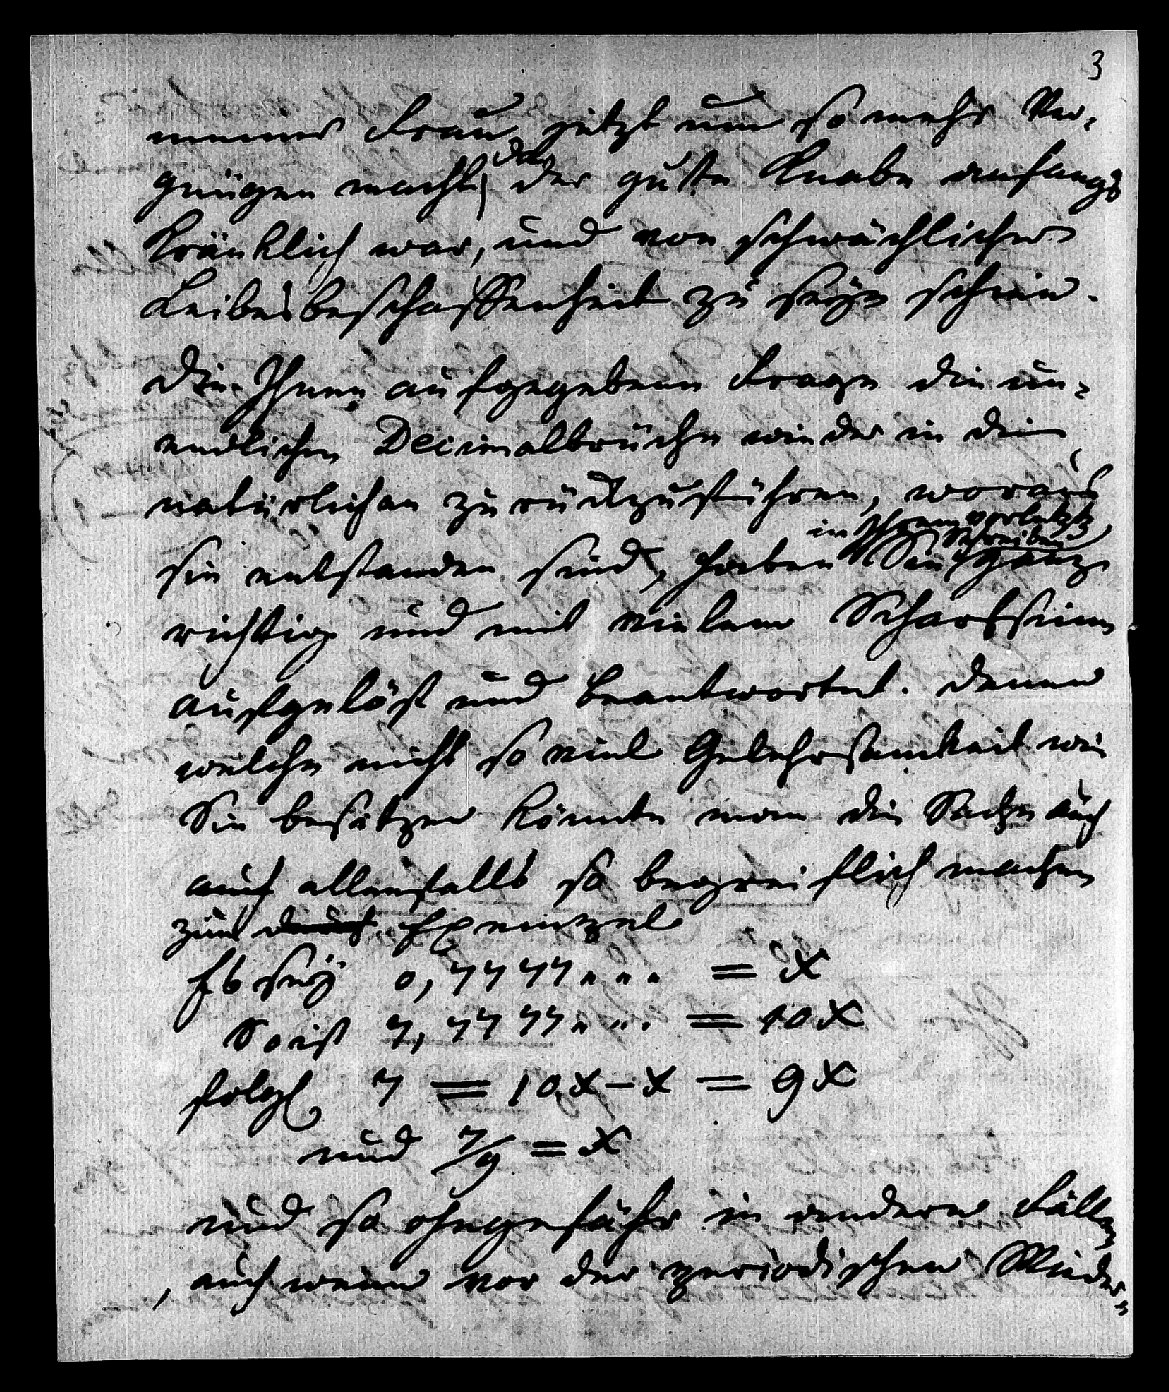 3
meiner Frau jetzt um so mehr Ver-
gnügen macht, da der gute Knabe anfangs
kränklich war, und von schwächlicher
Leibesbeschaffenheit zu seyn schien.
Die Ihnen aufgegebene Frage die un-
endlichen Decimalbrüche wieder in die
natürlichen zurückzuführen, woraus
in Ihrem vorletzten
Schreiben
sie entstanden sind, haben Sie ganz
richtig und mit vielem Scharfsinn
aufgelöst und beantwortet. Denen
welche nicht so viel Gelehrsamkeit wie
Sie besitzen könnte man die Sache auch
auch allenfalls so begreiflich machen
zum Exempel
Es sey 0,7777... = x
So ist 7,7777... = 10x
folgl 7 = 10x – x = 9x
und 7/9 = x
und so ohngefähr in andern Fällen
, auch wenn vor der periodischen Wieder-